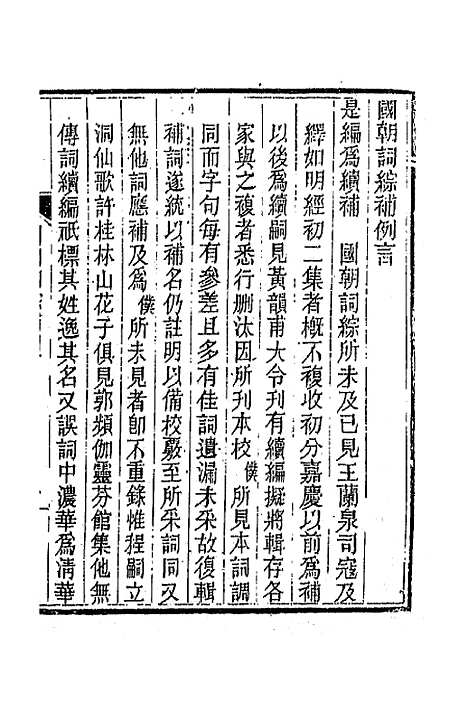 國朝詞綜補例言
是編爲續補　國朝詞綜所未及已見王蘭泉司寇及
繹如明經初二集者槪不複收初分嘉慶以前爲補
以後爲續嗣見黃韻甫大令刊有續編擬將輯存各
家與之複者悉行刪汰因所刊本校僕所見本詞調
同而字句每有參差且多有佳詞遺漏未采故復輯
補詞遂統以補名仍註明以備校覈至所采詞同又
無他詞應補及爲僕所未見者卽不重錄惟程嗣立
洞仙歌許桂林山花子俱見郭頻伽靈芬館集他無
傳詞續編祇標其姓逸其名又誤詞中濃華爲清華